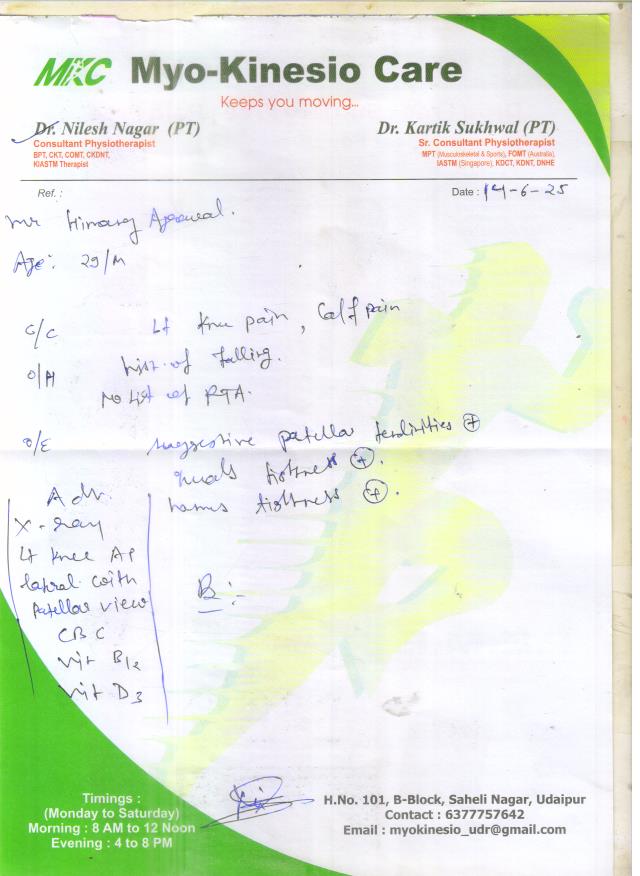 MKC Myo-Kinesio Care
Keeps you moving...
Dr. Nilesh Nagar (PT)
Consultant Physiotherapist
BPT, CKT, COMT, CKDNT,
KIASTM Therapist
Dr. Kartik Sukhwal (PT)
Sr. Consultant Physiotherapist
MPT (Musculoskeletal & Sports), FOMT (Australia),
IASTM (Singapore), KDCT, KDNT, DNHE
Ref. :
Date : 14-6-25
Mr Himang Agrawal.
Age: 29/M
C/C Lt knee pain, Calf pain
O/H hist. of falling.
No hist of RTA.
O/E suggestive patellar tendinities (+)
quads tightness (+).
hams tightness (+).
Adv.
X-ray
Lt knee AP
lateral with
Patellar view
CBC
Vit B12
Vit D3
Rx :-
Timings :
(Monday to Saturday)
Morning : 8 AM to 12 Noon
Evening : 4 to 8 PM
H.No. 101, B-Block, Saheli Nagar, Udaipur
Contact : 6377757642
Email : myokinesio_udr@gmail.com